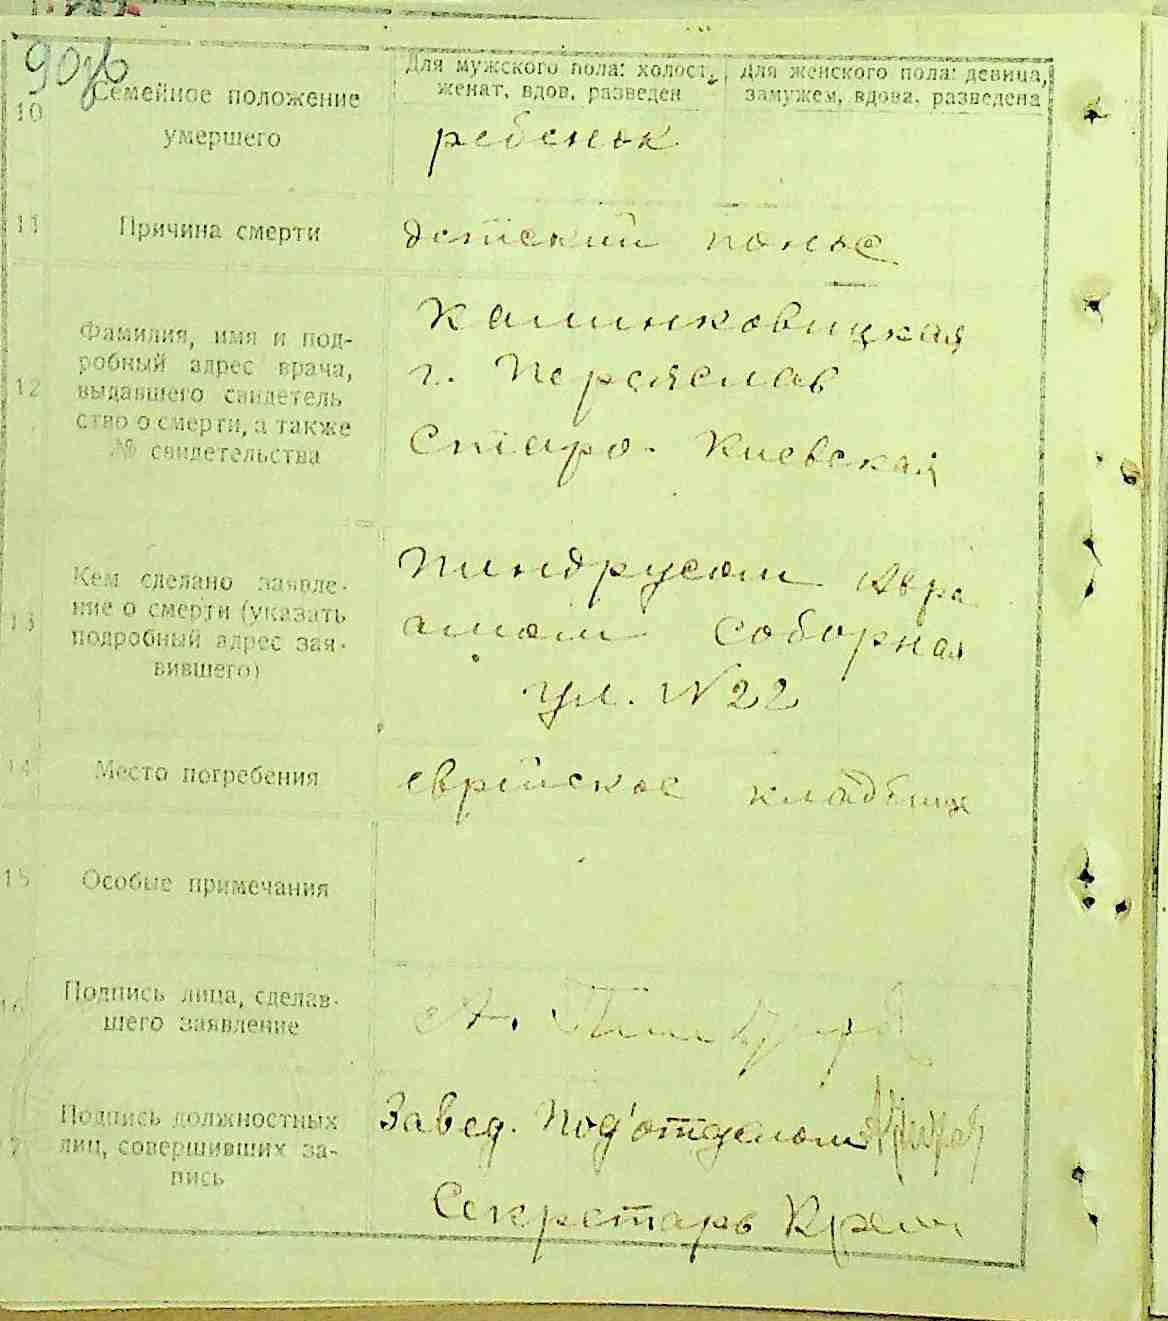 90об
Для мужского пола: холост,
женат, вдов, разведен
Для женского пола: девица,
замужем, вдова, разведена
10
Семейное положение
умершего
ребенок
11
Причина смерти
детский понос
12
Фамилия, имя и под-
робный адрес врача,
выдавшего свидетель
ство о смерти, а также
№ свидетельства
Калинковицкая
г. Переяслав
Старо-Киевская
13
Кем сделано заявле-
ние о смерти (указать
подробный адрес зая-
вившего)
Пиндрусом Авра
амом Соборная
ул. N 22
14
Место погребения
еврейское кладбище
15
Особые примечания
16
Подпись лица, сделав-
шего заявление
А.
17
Подпись должностных
лиц, совершивших за-
пись
Завед. Под'отделом
Секретарь